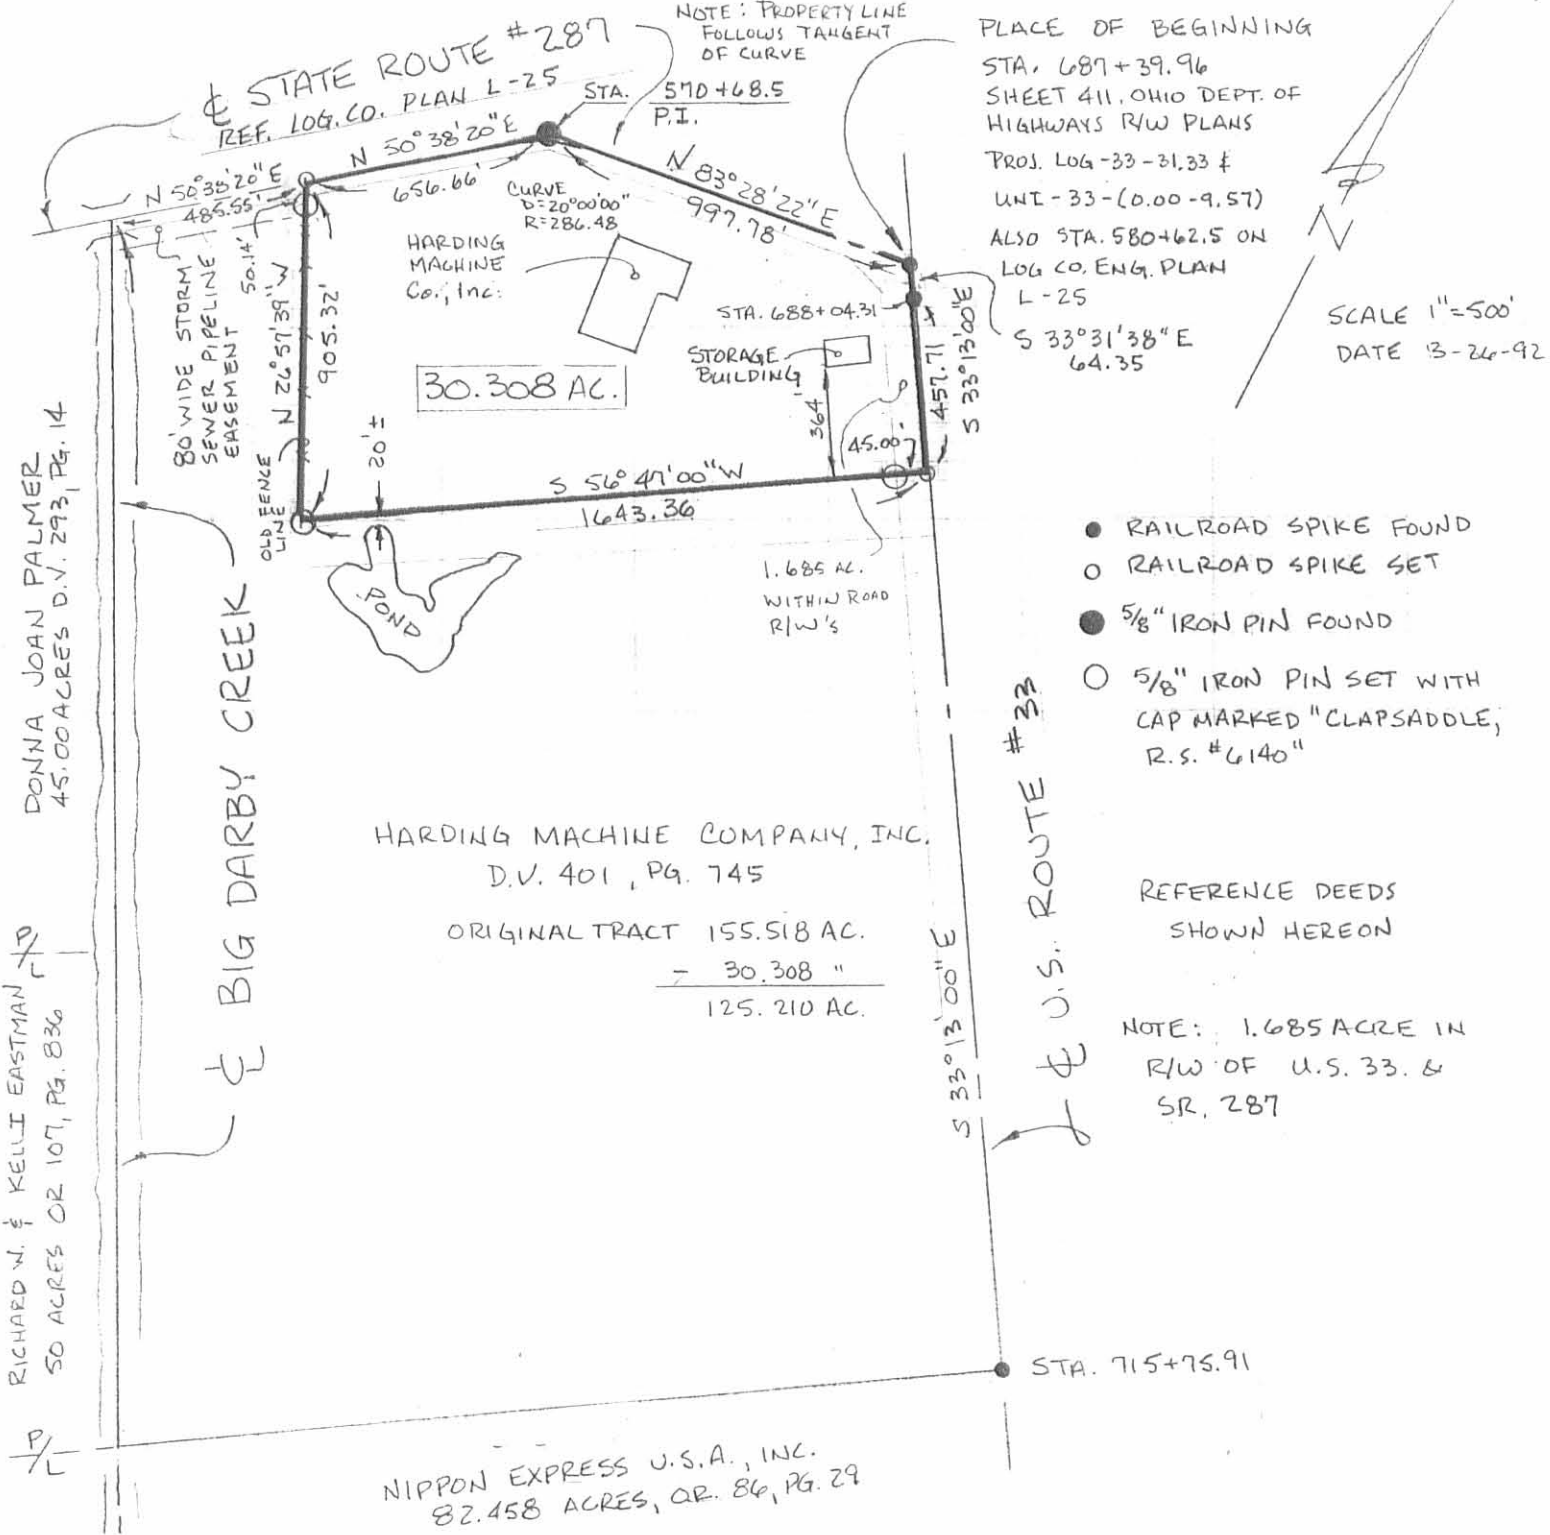 ℄ STATE ROUTE #287
REF. LOG. CO. PLAN L-25
NOTE: PROPERTY LINE
FOLLOWS TANGENT
OF CURVE
STA. 570+68.5
P.I.
PLACE OF BEGINNING
STA. 687+39.96
SHEET 411, OHIO DEPT. OF
HIGHWAYS R/W PLANS
PROJ. LOG-33-31.33 &
UNI-33-(0.00-9.57)
ALSO STA. 580+62.5 ON
LOG CO. ENG. PLAN
L-25
S 33°31'38"E
64.35
N
SCALE 1"=500'
DATE 3-26-92
N 50°38'20"E
485.55'
N 50°38'20"E
656.66'
CURVE
D=20°00'00"
R=286.48
N 83°28'22"E
997.78'
HARDING
MACHINE
Co., Inc.
STA. 688+04.31
STORAGE
BUILDING
30.308 AC.
364'
45.00'
457.71
S 33°13'00"E
80' WIDE STORM
SEWER PIPELINE
EASEMENT
50.14'
N 26°57'39"W
905.32'
OLD FENCE
LINE
20'±
S 56°47'00"W
1643.36
POND
1.685 AC.
WITHIN ROAD
R/W'S
RAILROAD SPIKE FOUND
RAILROAD SPIKE SET
5/8" IRON PIN FOUND
5/8" IRON PIN SET WITH
CAP MARKED "CLAPSADDLE,
R.S. #6140"
DONNA JOAN PALMER
45.00 ACRES D.V. 293, PG. 14
℄ BIG DARBY CREEK
HARDING MACHINE COMPANY, INC.
D.V. 401, PG. 745
ORIGINAL TRACT 155.518 AC.
- 30.308 "
125.210 AC.
S 33°13'00"E
℄ U.S. ROUTE #33
REFERENCE DEEDS
SHOWN HEREON
NOTE: 1.685 ACRE IN
R/W OF U.S. 33. &
SR. 287
P/L
RICHARD W. & KELLI EASTMAN
50 ACRES OR 107, PG. 836
P/L
STA. 715+75.91
NIPPON EXPRESS U.S.A., INC.
82.458 ACRES, OR. 86, PG. 29